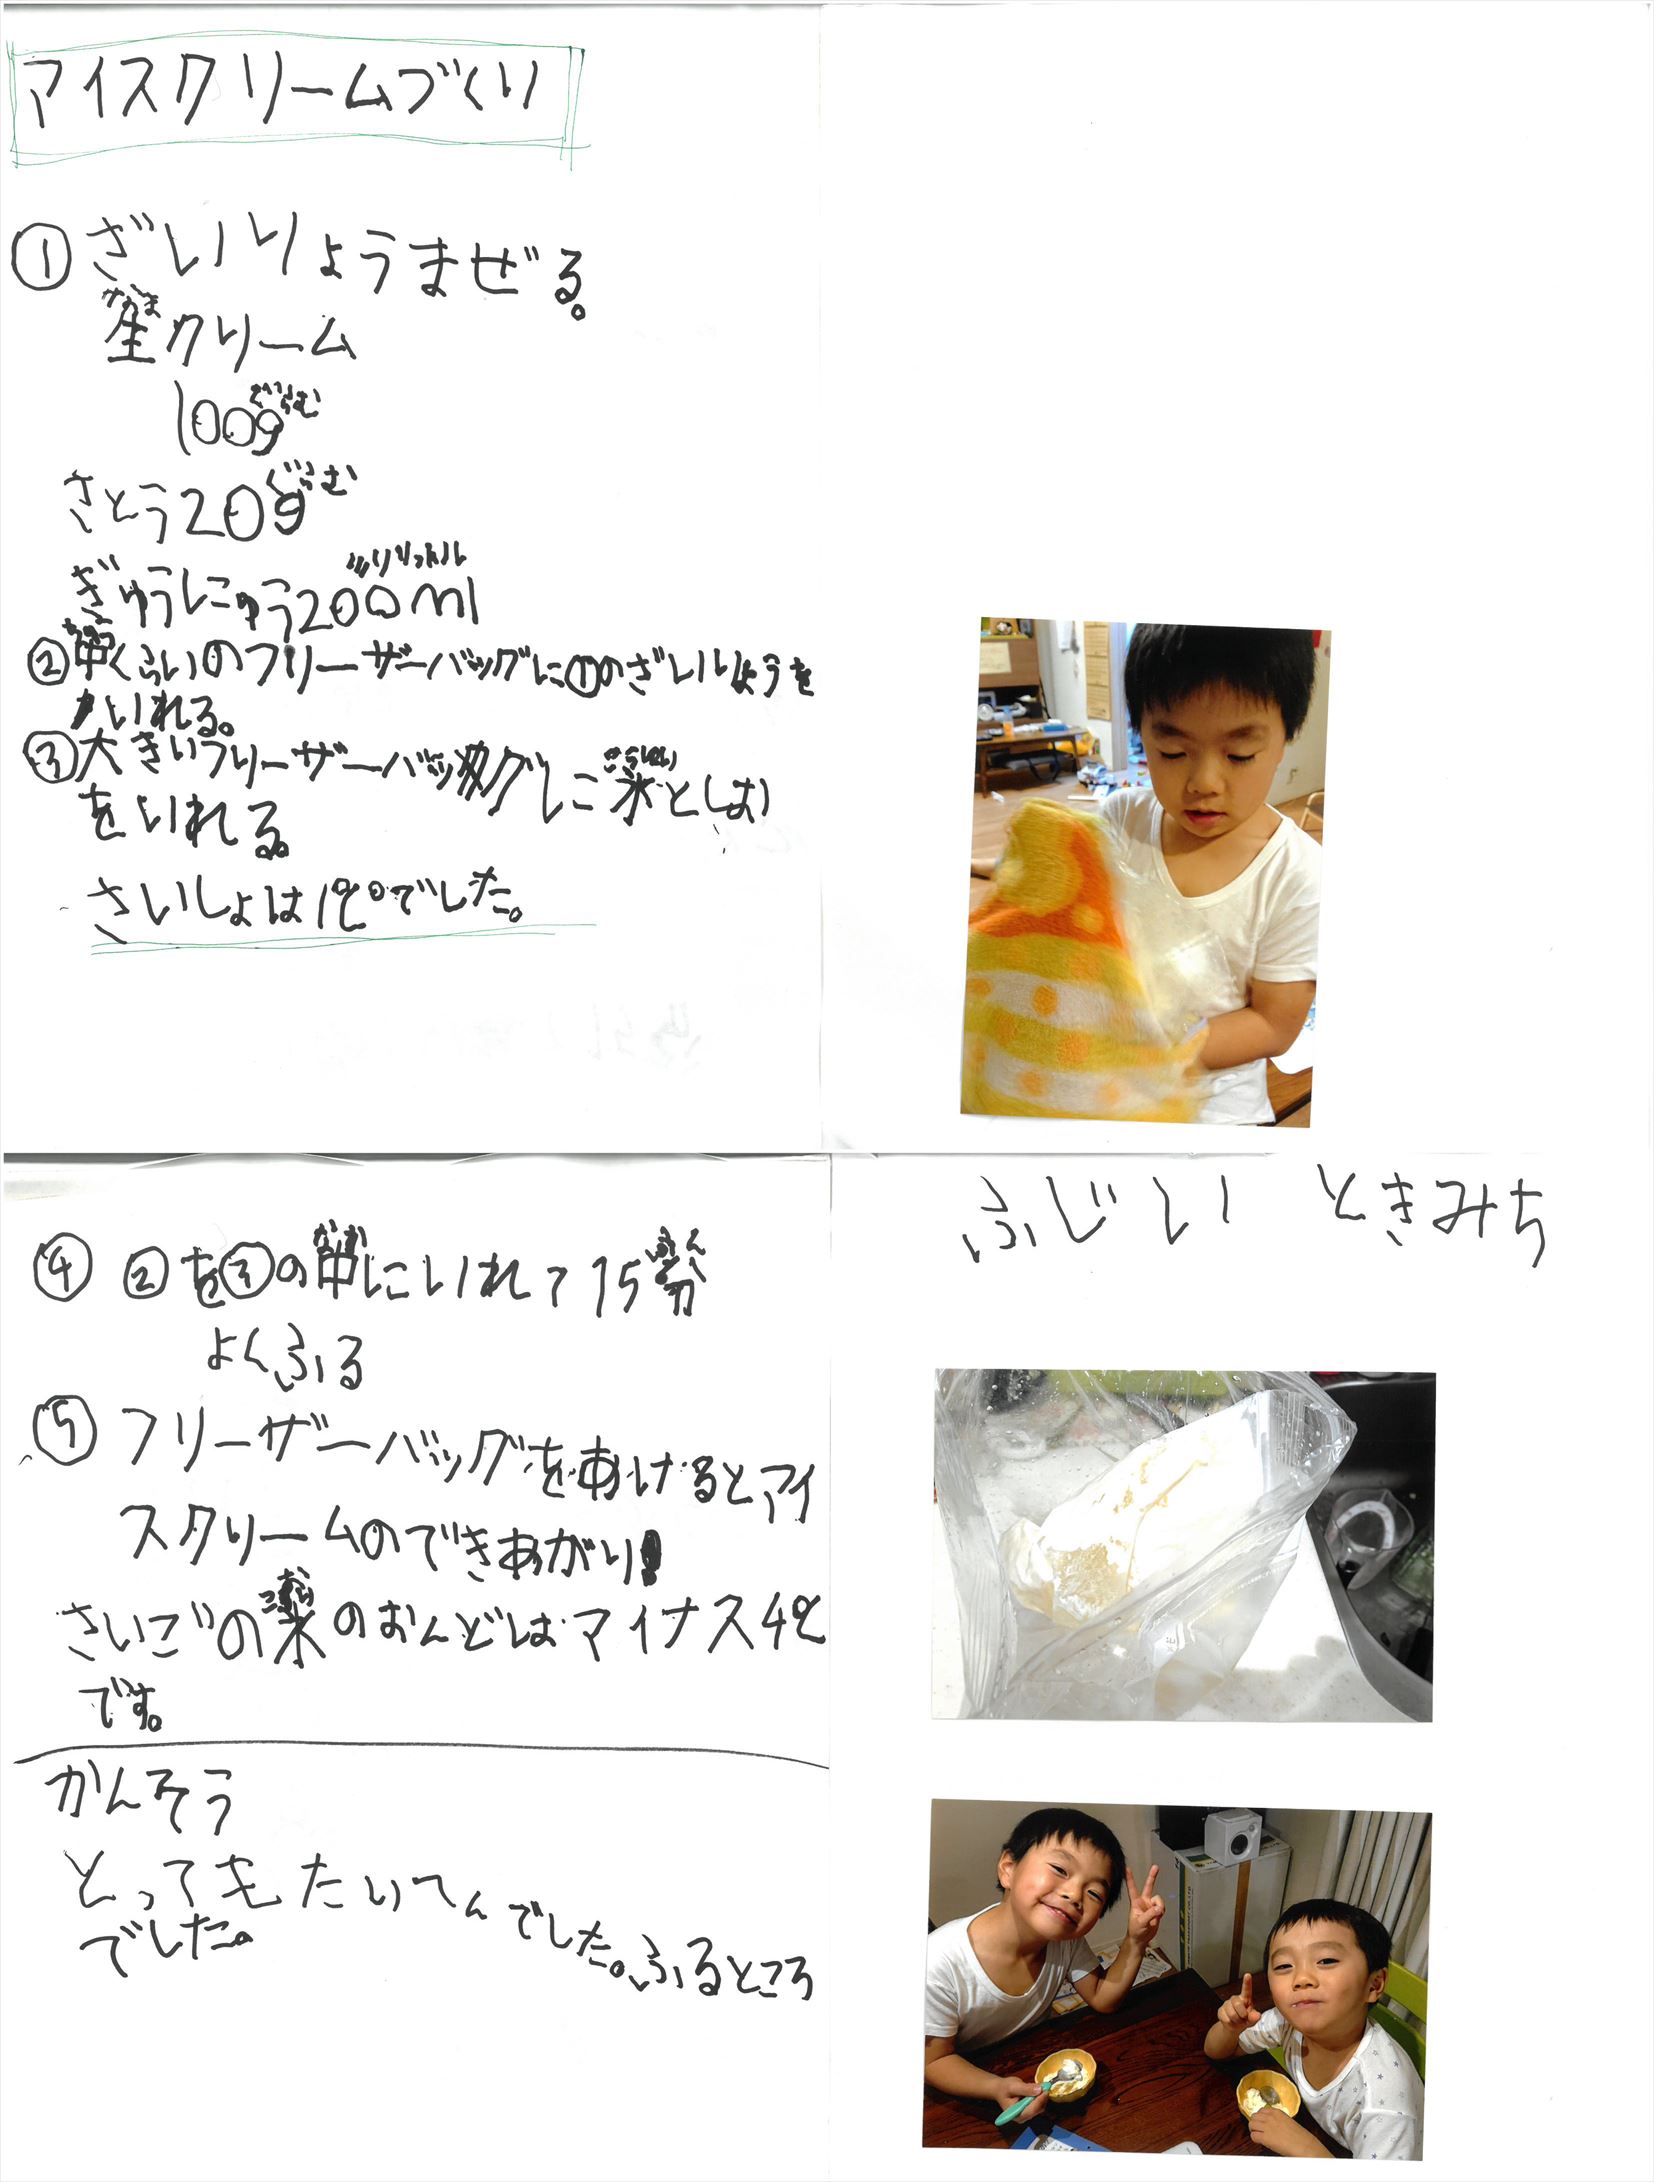 アイスクリームづくり
①ざいりょうまぜる。
生クリーム
100g
さとう20g
ぎゅうにゅう200ml
②中くらいのフリーザーバッグに①のざいりょうを
いれる。
③大きいフリーザーバッグに氷としお
をいれる。
さいしょは1℃でした。
④ ②を③の中にいれて15分
よくふる
⑤フリーザーバッグをあけるとアイ
スクリームのできあがり!
さいごの氷のおんどはマイナス4℃
です。
かんそう
とってもたいへんでした。ふるところ
でした。
ふじい ときみち